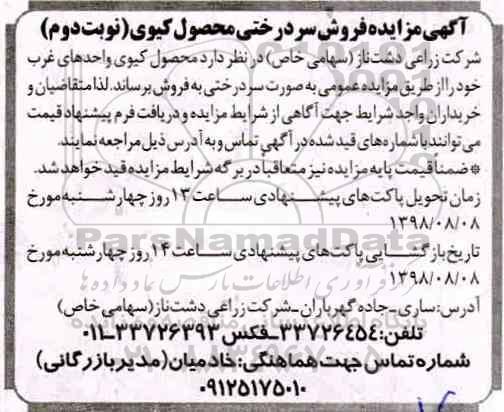 آگهی مزایده فروش سردرختی محصول کیوی (نوبت دوم)
شرکت زراعی دشت ناز (سهامی خاص) در نظر دارد محصول کیوی واحدهای غرب
خود را از طریق مزایده عمومی به صورت سردرختی به فروش برساند. لذا متقاضیان و
خریداران واجد شرایط جهت آگاهی از شرایط مزایده و دریافت فرم پیشنهاد قیمت
می توانند با شماره های قید شده در آگهی تماس و به آدرس ذیل مراجعه نمایند.
* ضمناً قیمت پایه مزایده نیز متعاقبا در برگه شرایط مزایده قید خواهد شد.
زمان تحویل پاکت های پیشنهادی ساعت ۱۳ روز چهارشنبه مورخ
۱۳۹۸/۰۸/۰۸
ParsNamadData
تاریخ بازگشایی پاکت های پیشنهادی ساعت ۱۴ روز چهارشنبه مورخ
۱۳۹۸/۰۸/۰۸
فرآوری اطلاعات پارس نماد داده ها
آدرس: ساری-جاده گهرباران-شرکت زراعی دشت ناز (سهامی خاص)
تلفن: ۳۳۷۲۶۴۵۴_فکس ۳۳۷۲۶۳۹۳_۰۱۱
شماره تماس جهت هماهنگی: خادمیان (مدیر بازرگانی)
۰۹۱۲۵۱۷۵۰۱۰